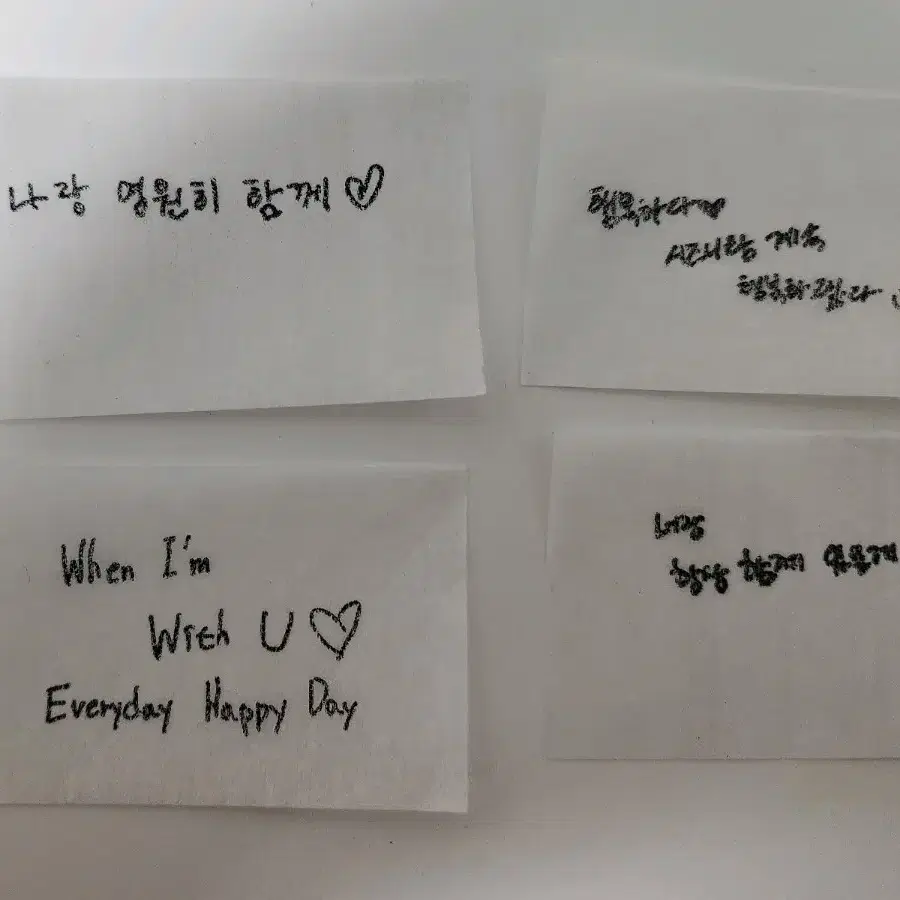 나랑 영원히 함께♡
행복하다♥
시즈니랑 계속
행복하렵니다
When I'm
With U♡
Everyday Happy Day
너랑
항상 함께 있을게